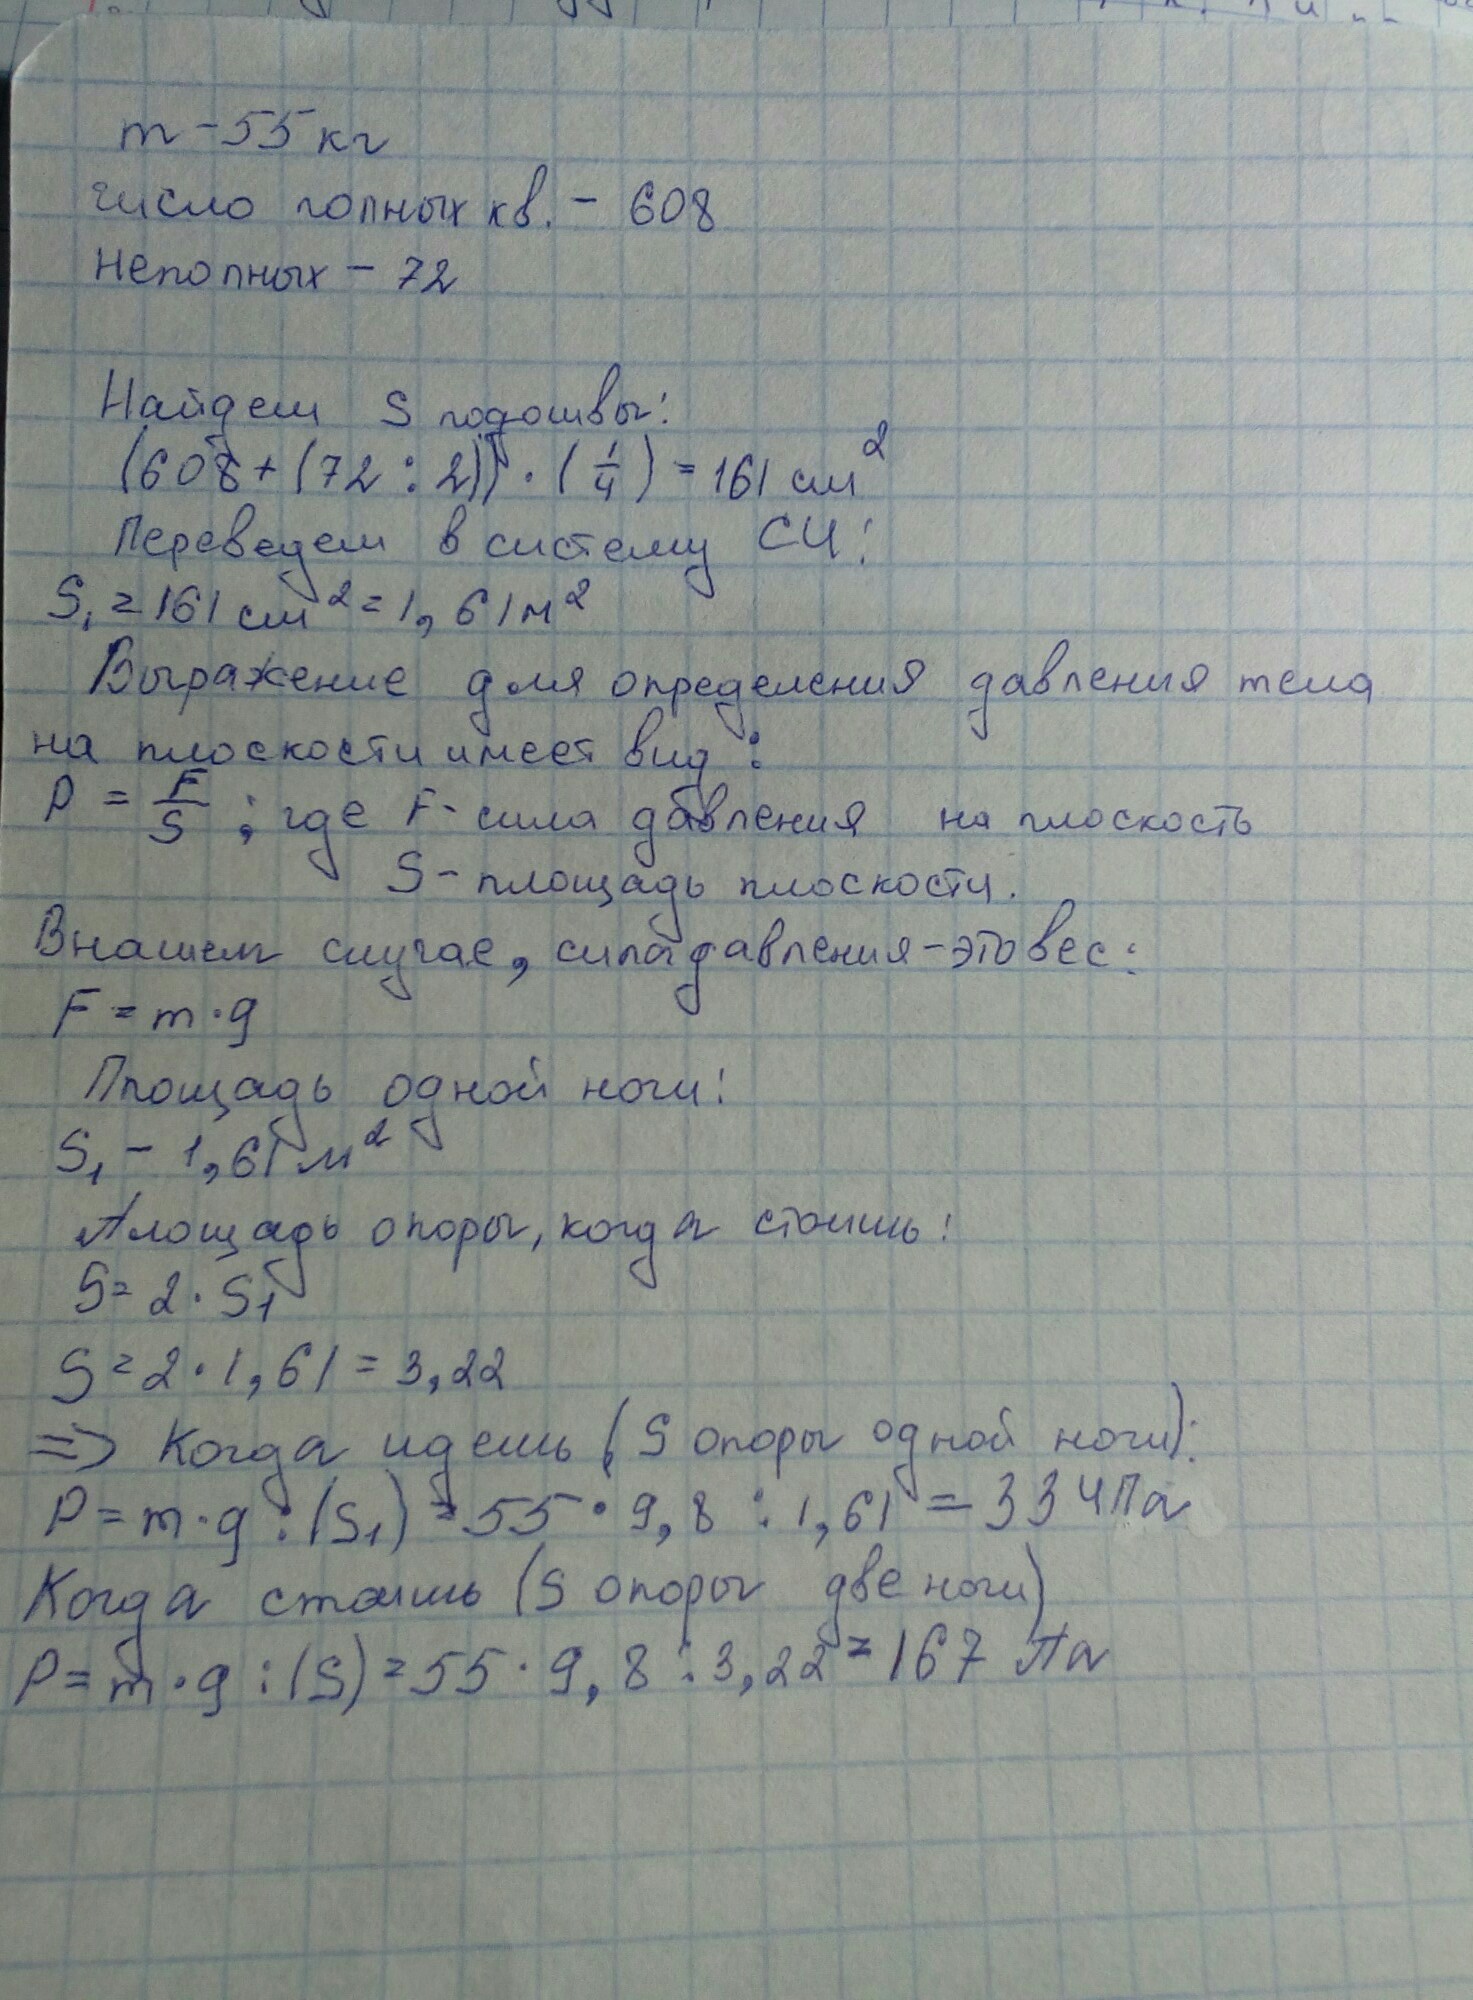 m - 55 кг
число полных кв. - 608
неполных - 72
Найдем S подошвы:
(608 + (72 : 2)) · (1/4) = 161 см²
Переведем в систему СИ:
S₁ = 161 см² = 1,61 м²
Выражение для определения давления тела
на плоскости имеет вид:
P = F/S ; где F - сила давления на плоскость
S - площадь плоскости.
В нашем случае, сила давления - это вес:
F = m · g
Площадь одной ноги:
S₁ - 1,61 м²
Площадь опоры, когда стоишь:
S = 2 · S₁
S = 2 · 1,61 = 3,22
=> Когда идешь (S опоры одной ноги):
P = m · g : (S₁) = 55 · 9,8 : 1,61 = 334 Па
Когда стоишь (S опоры две ноги)
P = m · g : (S) = 55 · 9,8 : 3,22 = 167 Па